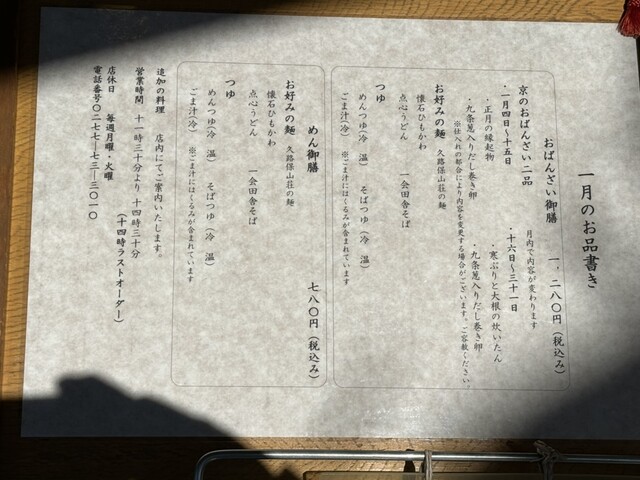 一月のお品書き
おばんざい御膳　一、二八〇円（税込み）
月内で内容が変わります
京のおばんざい二品
・一月四日～十五日
・正月の縁起物
・九条葱入りだし巻き卵
・十六日～三十一日
・寒ぶりと大根の炊いたん
・九条葱入りだし巻き卵
※仕入れの都合により内容を変更する場合がございます。ご容赦ください。
お好みの麺　久路保山荘の麺
懐石ひもかわ
点心うどん　一会田舎そば
つゆ
めんつゆ（冷　温）　そばつゆ（冷　温）
ごま汁（冷）　※ごま汁にはくるみが含まれています
めん御膳　七八〇円（税込み）
お好みの麺　久路保山荘の麺
懐石ひもかわ
点心うどん　一会田舎そば
つゆ
めんつゆ（冷　温）　そばつゆ（冷　温）
ごま汁（冷）　※ごま汁にはくるみが含まれています
追加の料理　店内にてご案内いたします。
営業時間　十一時三十分より　十四時三十分
（十四時ラストオーダー）
店休日　毎週月曜・火曜
電話番号〇二七七―七三―三〇一〇